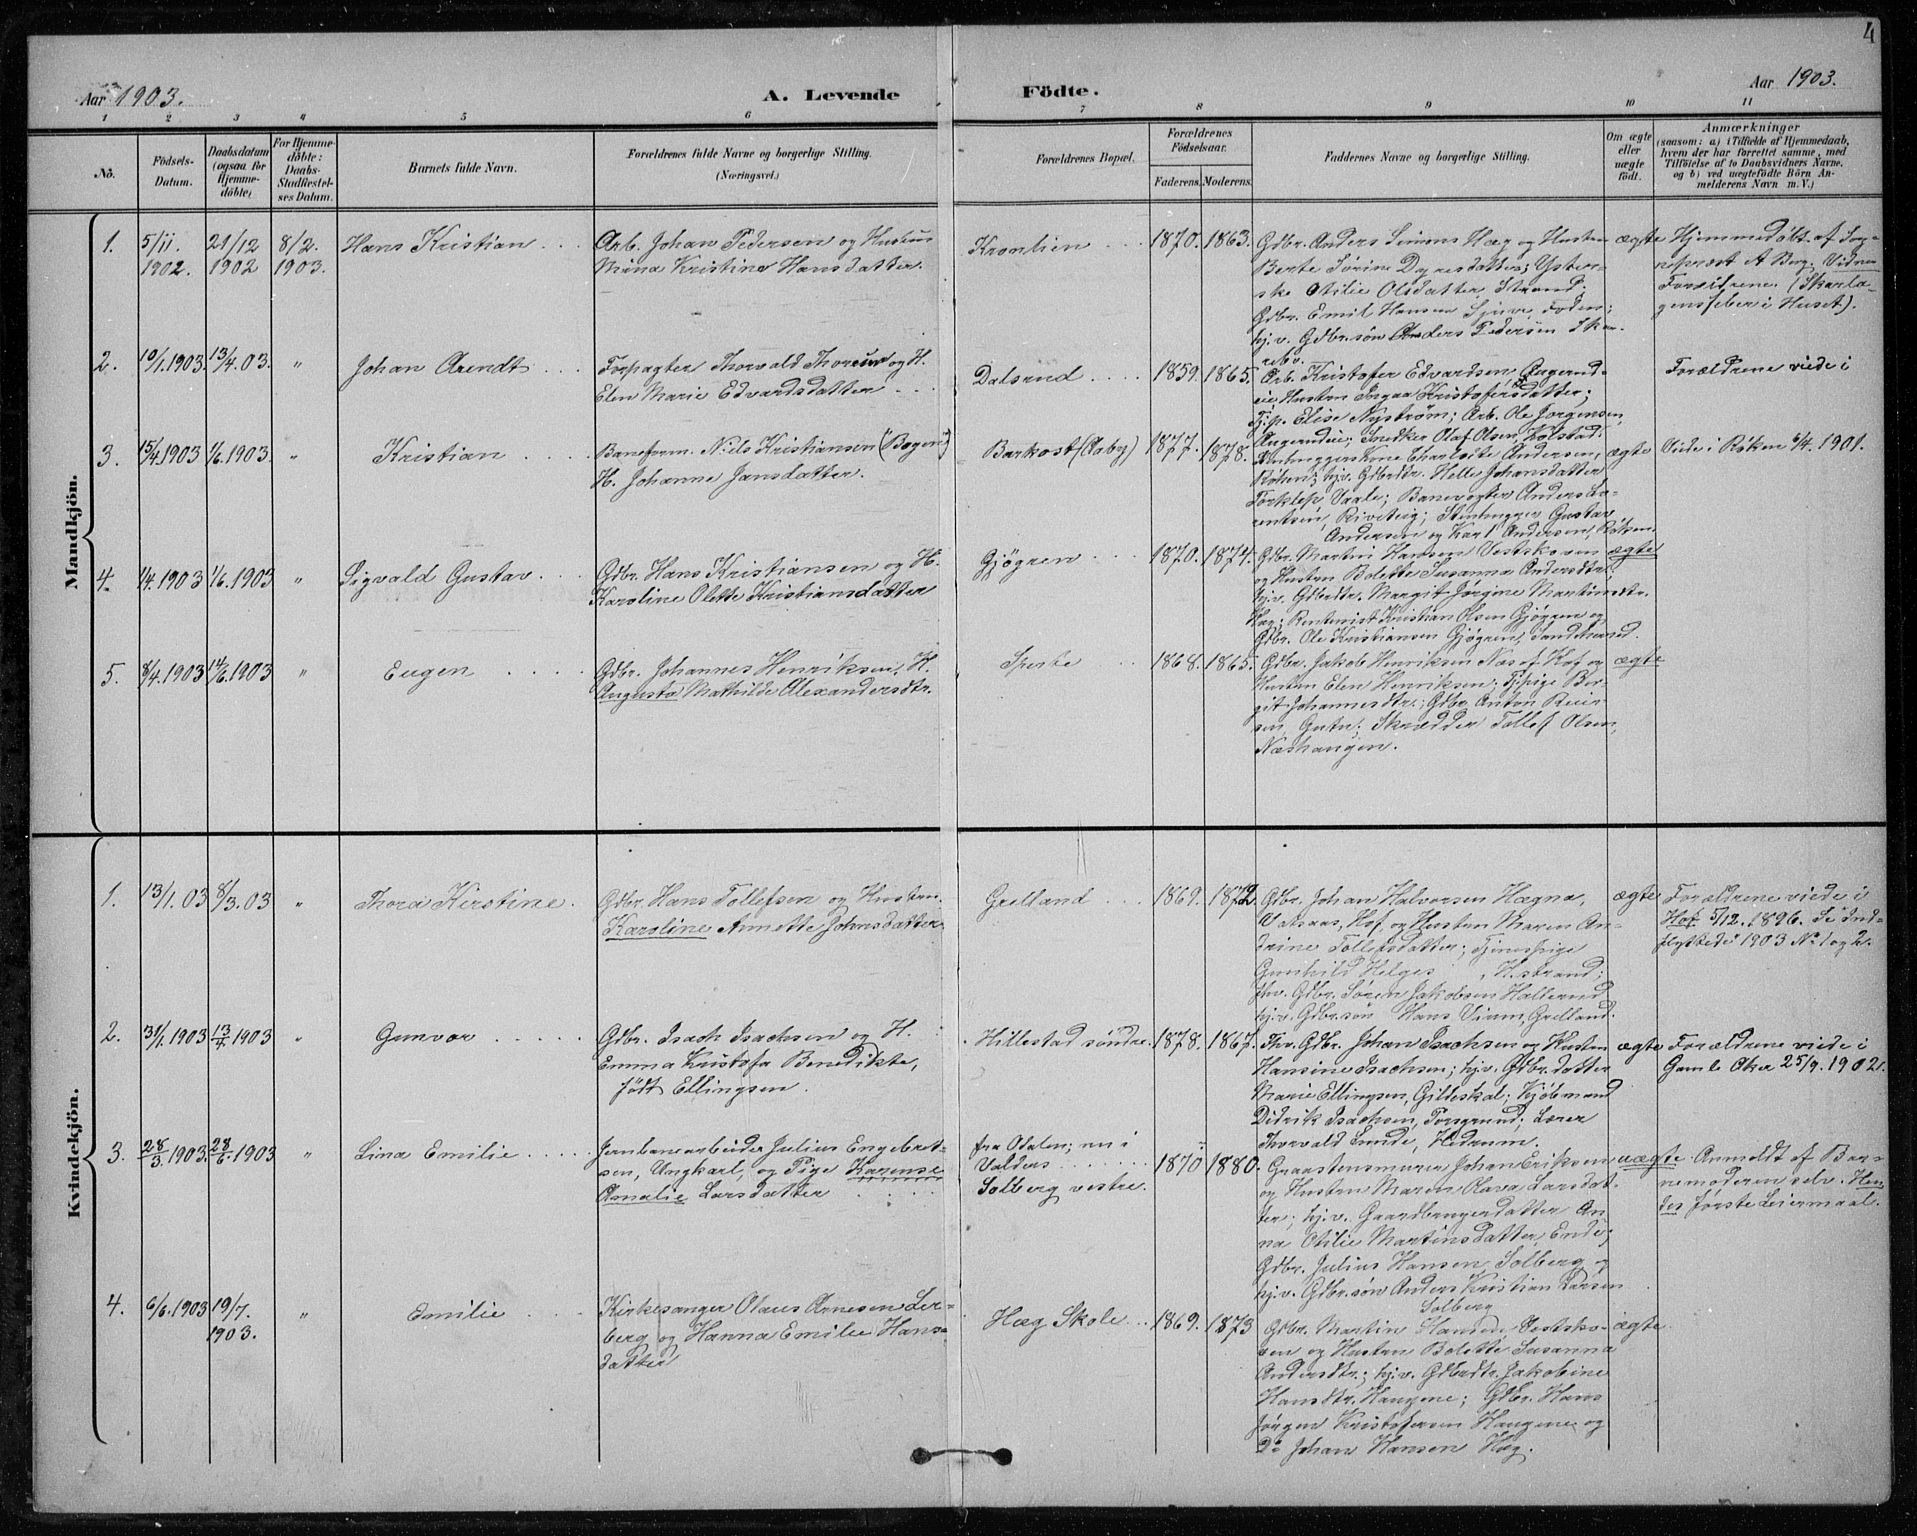 4
Aar 1903.
A. Levende
Födte.
Aar 1903.
1 2 3 4 5 6 7 8 9 10 11
No.
Födsels-
Datum.
Daabsdatum
(ogsaa for
Hjemme-
döbte)
For Hjemme-
döbte:
Daabs-
Stadfæstel-
ses Datum.
Barnets fulde Navn.
Forældrenes fulde Navne og borgerlige Stilling.
(Næringsvei.)
Forældrenes Bopæl.
Forældrenes
Födselsaar.
Faderens. Moderens.
Faddernes Navne og borgerlige Stilling.
Om ægte
eller
uægte
födt.
Anmærkninger
(saasom: a) i Tilfælde af Hjemmedaab,
hvem der har forrettet samme, med
Tilföielse af to Daabsvidners Navne,
og b) ved uægtefödte Börn An-
melderens Navn m. V.)
Mandkjön.
1.
5/11.
1902.
21/12
1902
8/2.
1903.
Hans Kristian
Arb. Johan Pedersen og Hustru
Mina Kristine Hansdatter.
Kronlien
1870. 1863.
Gdbr. Anders Simens Hæg og Hustru
Berte Sörine Dyresdatter;
Otilie Olsdatter, Strand;
Gdbr. Emil Hansen
hjv. Gdbr.søn Anders Pedersen
ægte
Hjemmedøbt af Sog-
nepræst A Berg. Vidner
Forældrene. (Skarla-
gensfeber i Huset).
2.
10/1.1903.
13/4.03.
"
Johan Arendt
Forpagter Thorvald Thoresen og H.
Elen Marie Edvardsdatter
Dalsrud
1859. 1865.
Arb. Kristofer Edvardsen,
Hustru Ingaa Kristofersdatter;
Tjp. Elise Nyström; Arb. Ole Jorgensen,
Snedker Olaf Olsen, Kolstad.
Forældrene viede i
3.
15/4.1903
1/6.1903.
"
Kristian
Baneform. Niels Kristiansen (Bogen)
H. Johanne Jansdatter.
Barkost (Aaby)
1877. 1878.
Charlotte Andersen,
Röken; hjv. Gdbrdtr. Helle Johansdatter
Vaale; Banevogter Anders La-
rentsen, Riveteig; Stenhugger Gustav
Andersen og Karl Andersen, Röken.
ægte
Viede i Röken 6/4.1901.
4.
1/4.1903
1/6.1903
"
Sigvald Gustav
Gdbr. Hans Kristiansen og H.
Karoline Olette Kristiansdatter
Gjögren
1870. 1874.
Gdbr. Martin Hansen Vestskoven
og Hustru Bolette Susanna Andersdtr;
hjv. Gdbrdtr. Margit Jørgine Martinsdtr.
Hæg; Rentenist Kristian Olsen Gjøgren og
Gdbr. Ole Kristiansen Gjøgren, Sandstrand.
ægte
5.
8/4.1903
14/6.1903
"
Eugen
Gdbr. Johannes Henriksen, H.
Augusta Mathilde Alexandersdtr.
Sperte
1868. 1865.
Gdbr. Jakob Henriksen Næs af Hof og
Hustru Elen Henriksen; Tjpige Ber-
git Johannesdtr.; Gdbr. Anton Reier-
sen, Skrædder Tollef Olsen,
Næshaugen.
ægte
Kvindekjön.
1.
13/1.03
8/3.03
"
Thora Kirstine.
Gdbr. Hans Tollefsen og Hustru
Karoline Annette Johnsdatter
Grelland
1869. 1872.
Gdbr. Johan Halvorsen Hægna,
Vataas, Hof, og Hustru Maren An-
drine Tollefsdatter; Tjenestpige
Gunhild Helges , H.strand;
fhv. Gdbr. Sören Jakobsen Hallerud
hjv. Gdbr.søn Hans Virum, Grelland.
ægte
Forældrene viede i
Hof 5/12.1896. Se Ind-
flyttede 1903 No 1 og 2.
2.
31/1.1903
13/4.1903
"
Gunvor
Gdbr. Isach Isachsen og H.
Emma Kristofa Benedikte,
født Ellingsen.
Hillestad söndre.
1878. 1867.
Fhv. Gdbr. Johan Isachsen og Hustru
Hansine Isachsen; hjv. Gdbr.datter
Marie Ellingsen, Gildeskal; Kjøbmand
Didrik Isachsen, Porsgrund; Lærer
Thorvald Lunde, Hedrum.
ægte
Forældrene viede i
Gamle Aker 25/9.1902.
3.
28/3.1903.
28/6.1903
"
Lina Emilie
Jernbanearbeider Julius Engebret-
sen, Ungkarl, og Pige Karense
Amalie Larsdatter
fra Odalen; nu i
Valders
Solberg vestre.
1870 1880.
Graastensmurer Johan Eriksen
og Hustru Maren Olava Larsdat-
ter; hjv. Gaardbrugerdatter An-
na Otilie Martinsdatter, Ende;
Gdbr. Julius Hansen Solberg og
hjv. Gdbr.søn Anders Kristian Larsen
Solberg
uægte
Anmeldt af Bar-
nemoderen selv. Hen-
des første Leiermaal.
4.
6/6.1903
19/7.
1903.
"
Emilie
Kirkesanger Olaus Arnesen Ler-
berg og Hanna Emilie Hans-
datter
Hæg Skole
1869. 1873
Gdbr. Martin Hansen, Vestsko-
ven og Hustru Bolette Susanna
Andersdtr.; hjv. Gdbrdtr. Jakobine
Hansdtr. Haugene; Gdbr. Hans
Jørgen Kristofersen Haugene og
Do Johan Hansen Hæg.
ægte